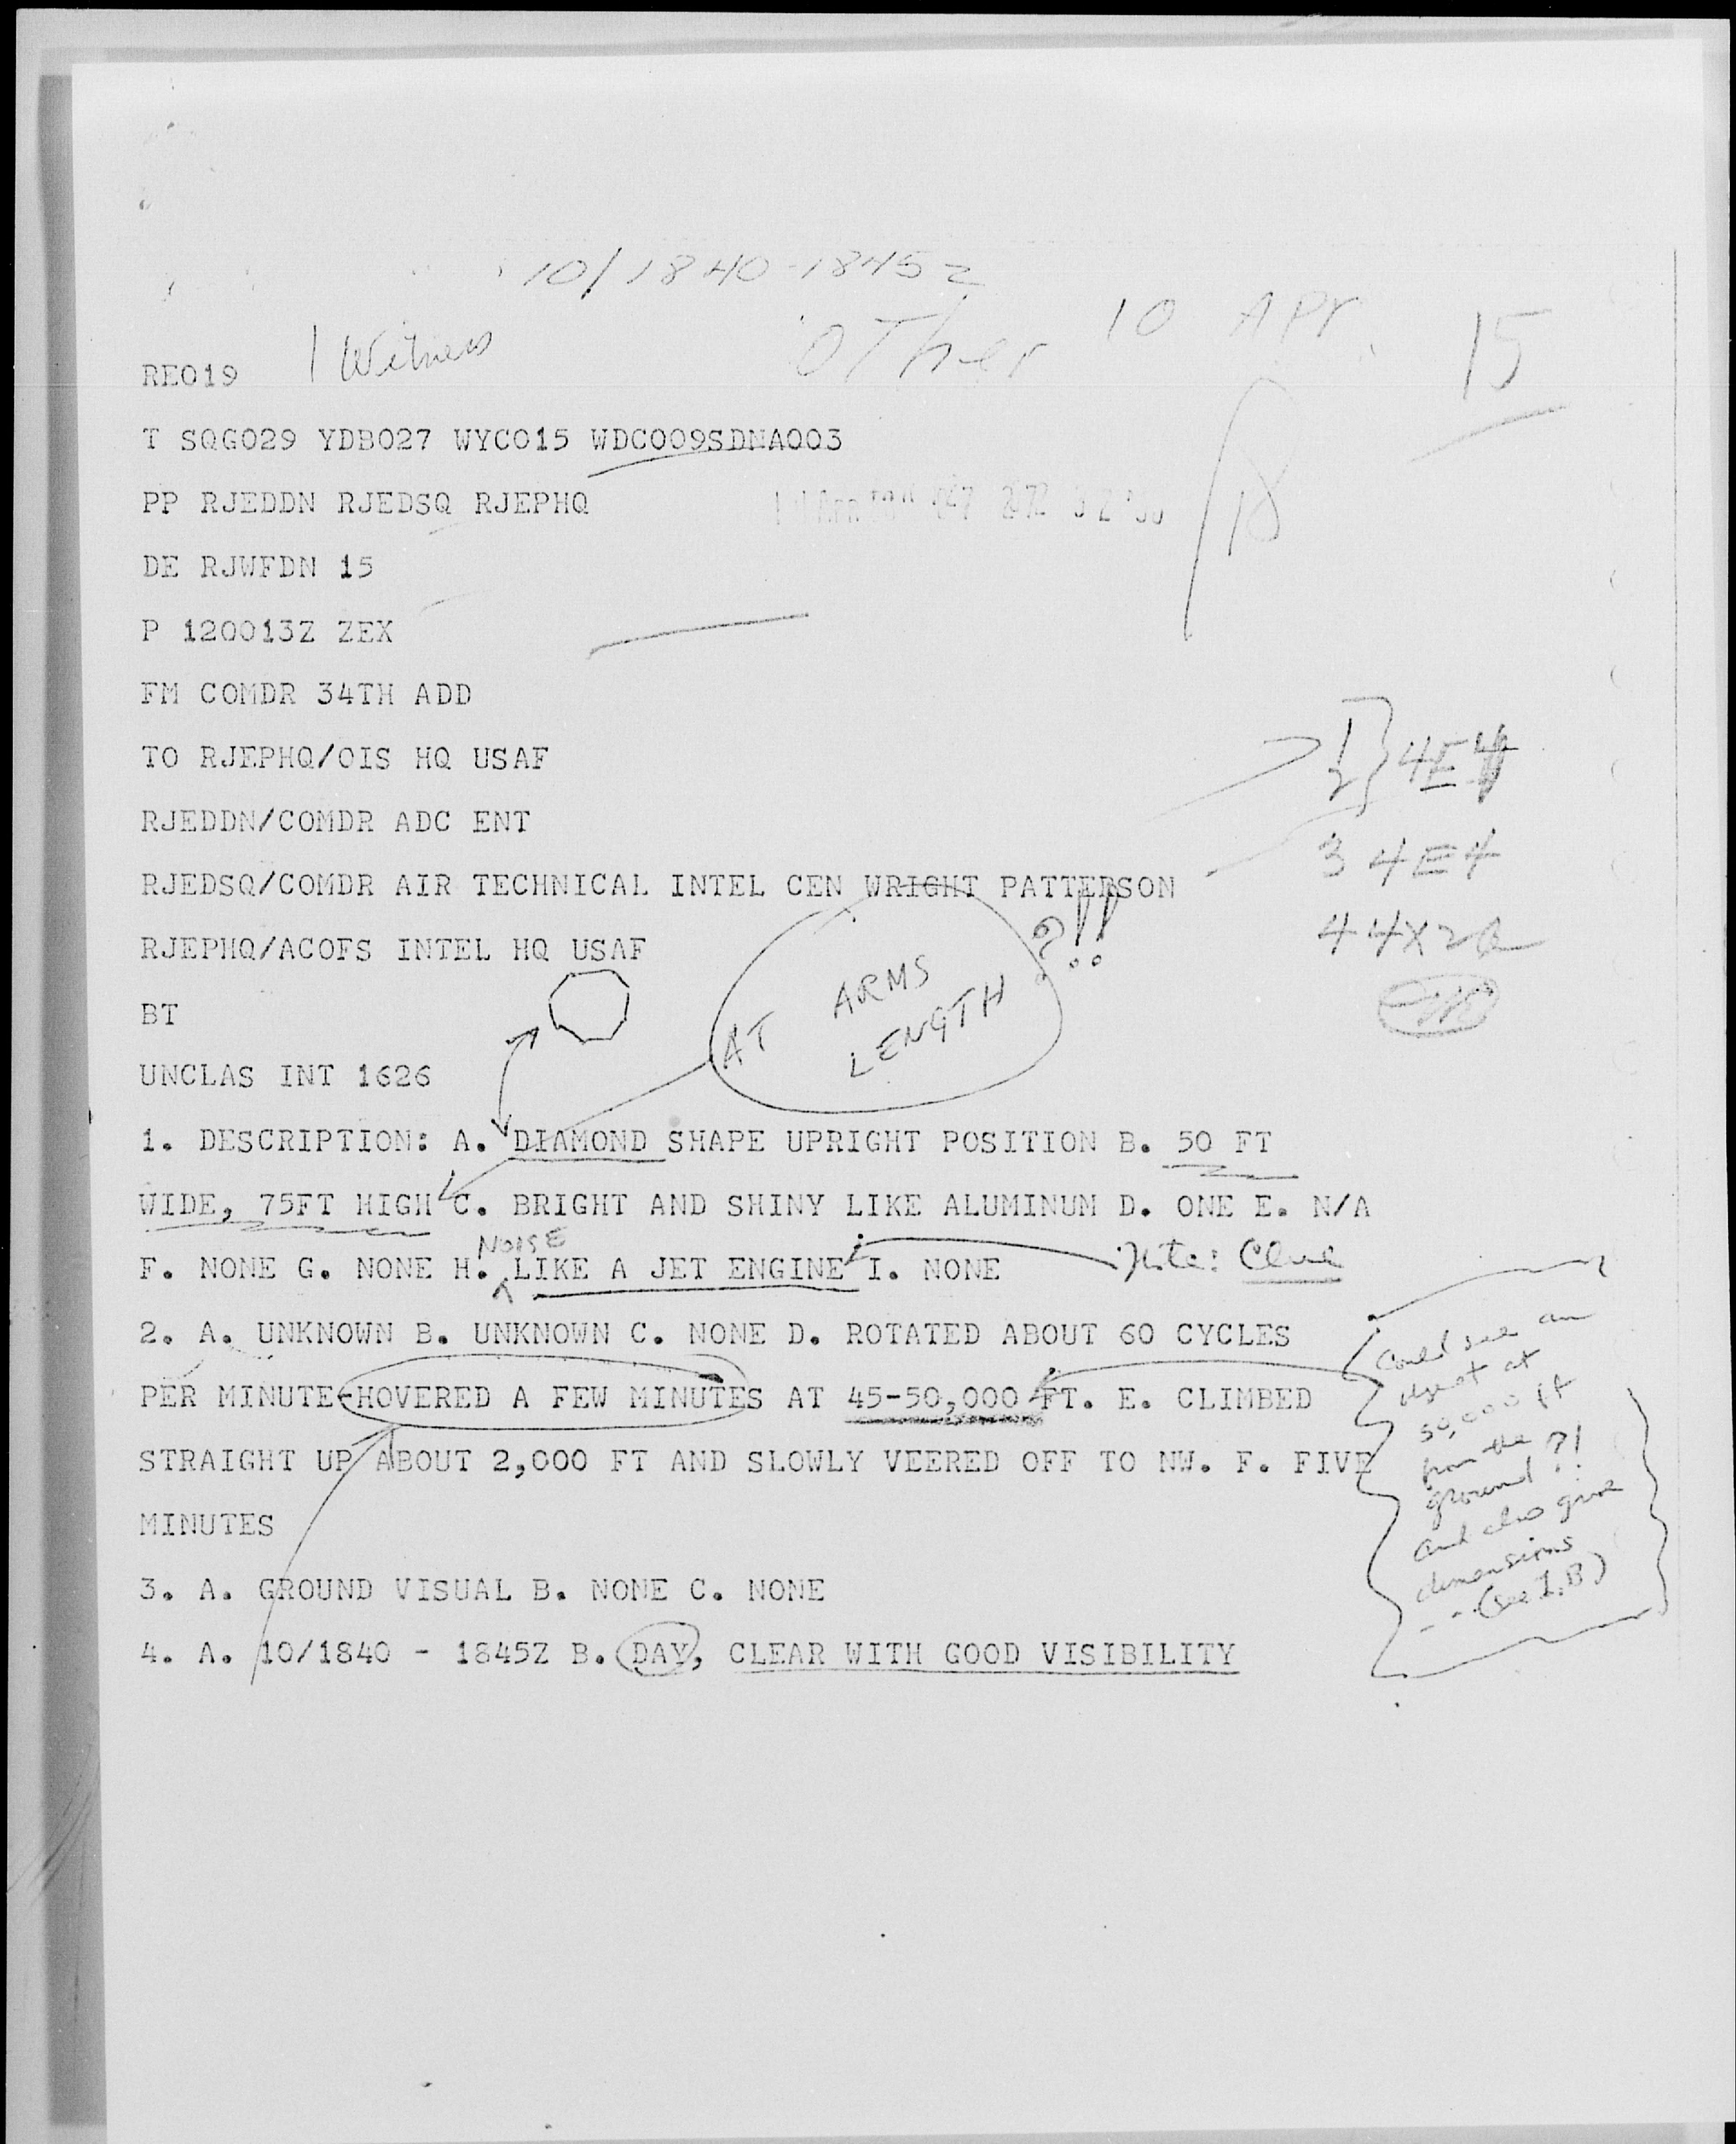 10/1840-1845Z
1 Witness
OTher
10 APr
15
RE019
T SQG029 YDB027 WYC015 WDC009SDNA003
PP RJEDDN RJEDSQ RJEPHQ
DE RJWFDN 15
P 120013Z ZEX
FM COMDR 34TH ADD
TO RJEPHQ/OIS HQ USAF
4E4
RJEDDN/COMDR ADC ENT
3 4E4
RJEDSQ/COMDR AIR TECHNICAL INTEL CEN WRIGHT PATTERSON
RJEPHQ/ACOFS INTEL HQ USAF
?!!
AT ARMS
LENGTH
BT
UNCLAS INT 1626
1. DESCRIPTION: A. DIAMOND SHAPE UPRIGHT POSITION B. 50 FT
WIDE, 75FT HIGH C. BRIGHT AND SHINY LIKE ALUMINUM D. ONE E. N/A
NOISE
F. NONE G. NONE H. LIKE A JET ENGINE I. NONE
Note: Clue
2. A. UNKNOWN B. UNKNOWN C. NONE D. ROTATED ABOUT 60 CYCLES
PER MINUTE-HOVERED A FEW MINUTES AT 45-50,000 FT. E. CLIMBED
STRAIGHT UP ABOUT 2,000 FT AND SLOWLY VEERED OFF TO NW. F. FIVE
MINUTES
Could see an
object at
50,000 ft
from the
ground ?!
and also give
dimensions
-- (see 1.B)
3. A. GROUND VISUAL B. NONE C. NONE
4. A. 10/1840 - 1845Z B. DAY, CLEAR WITH GOOD VISIBILITY